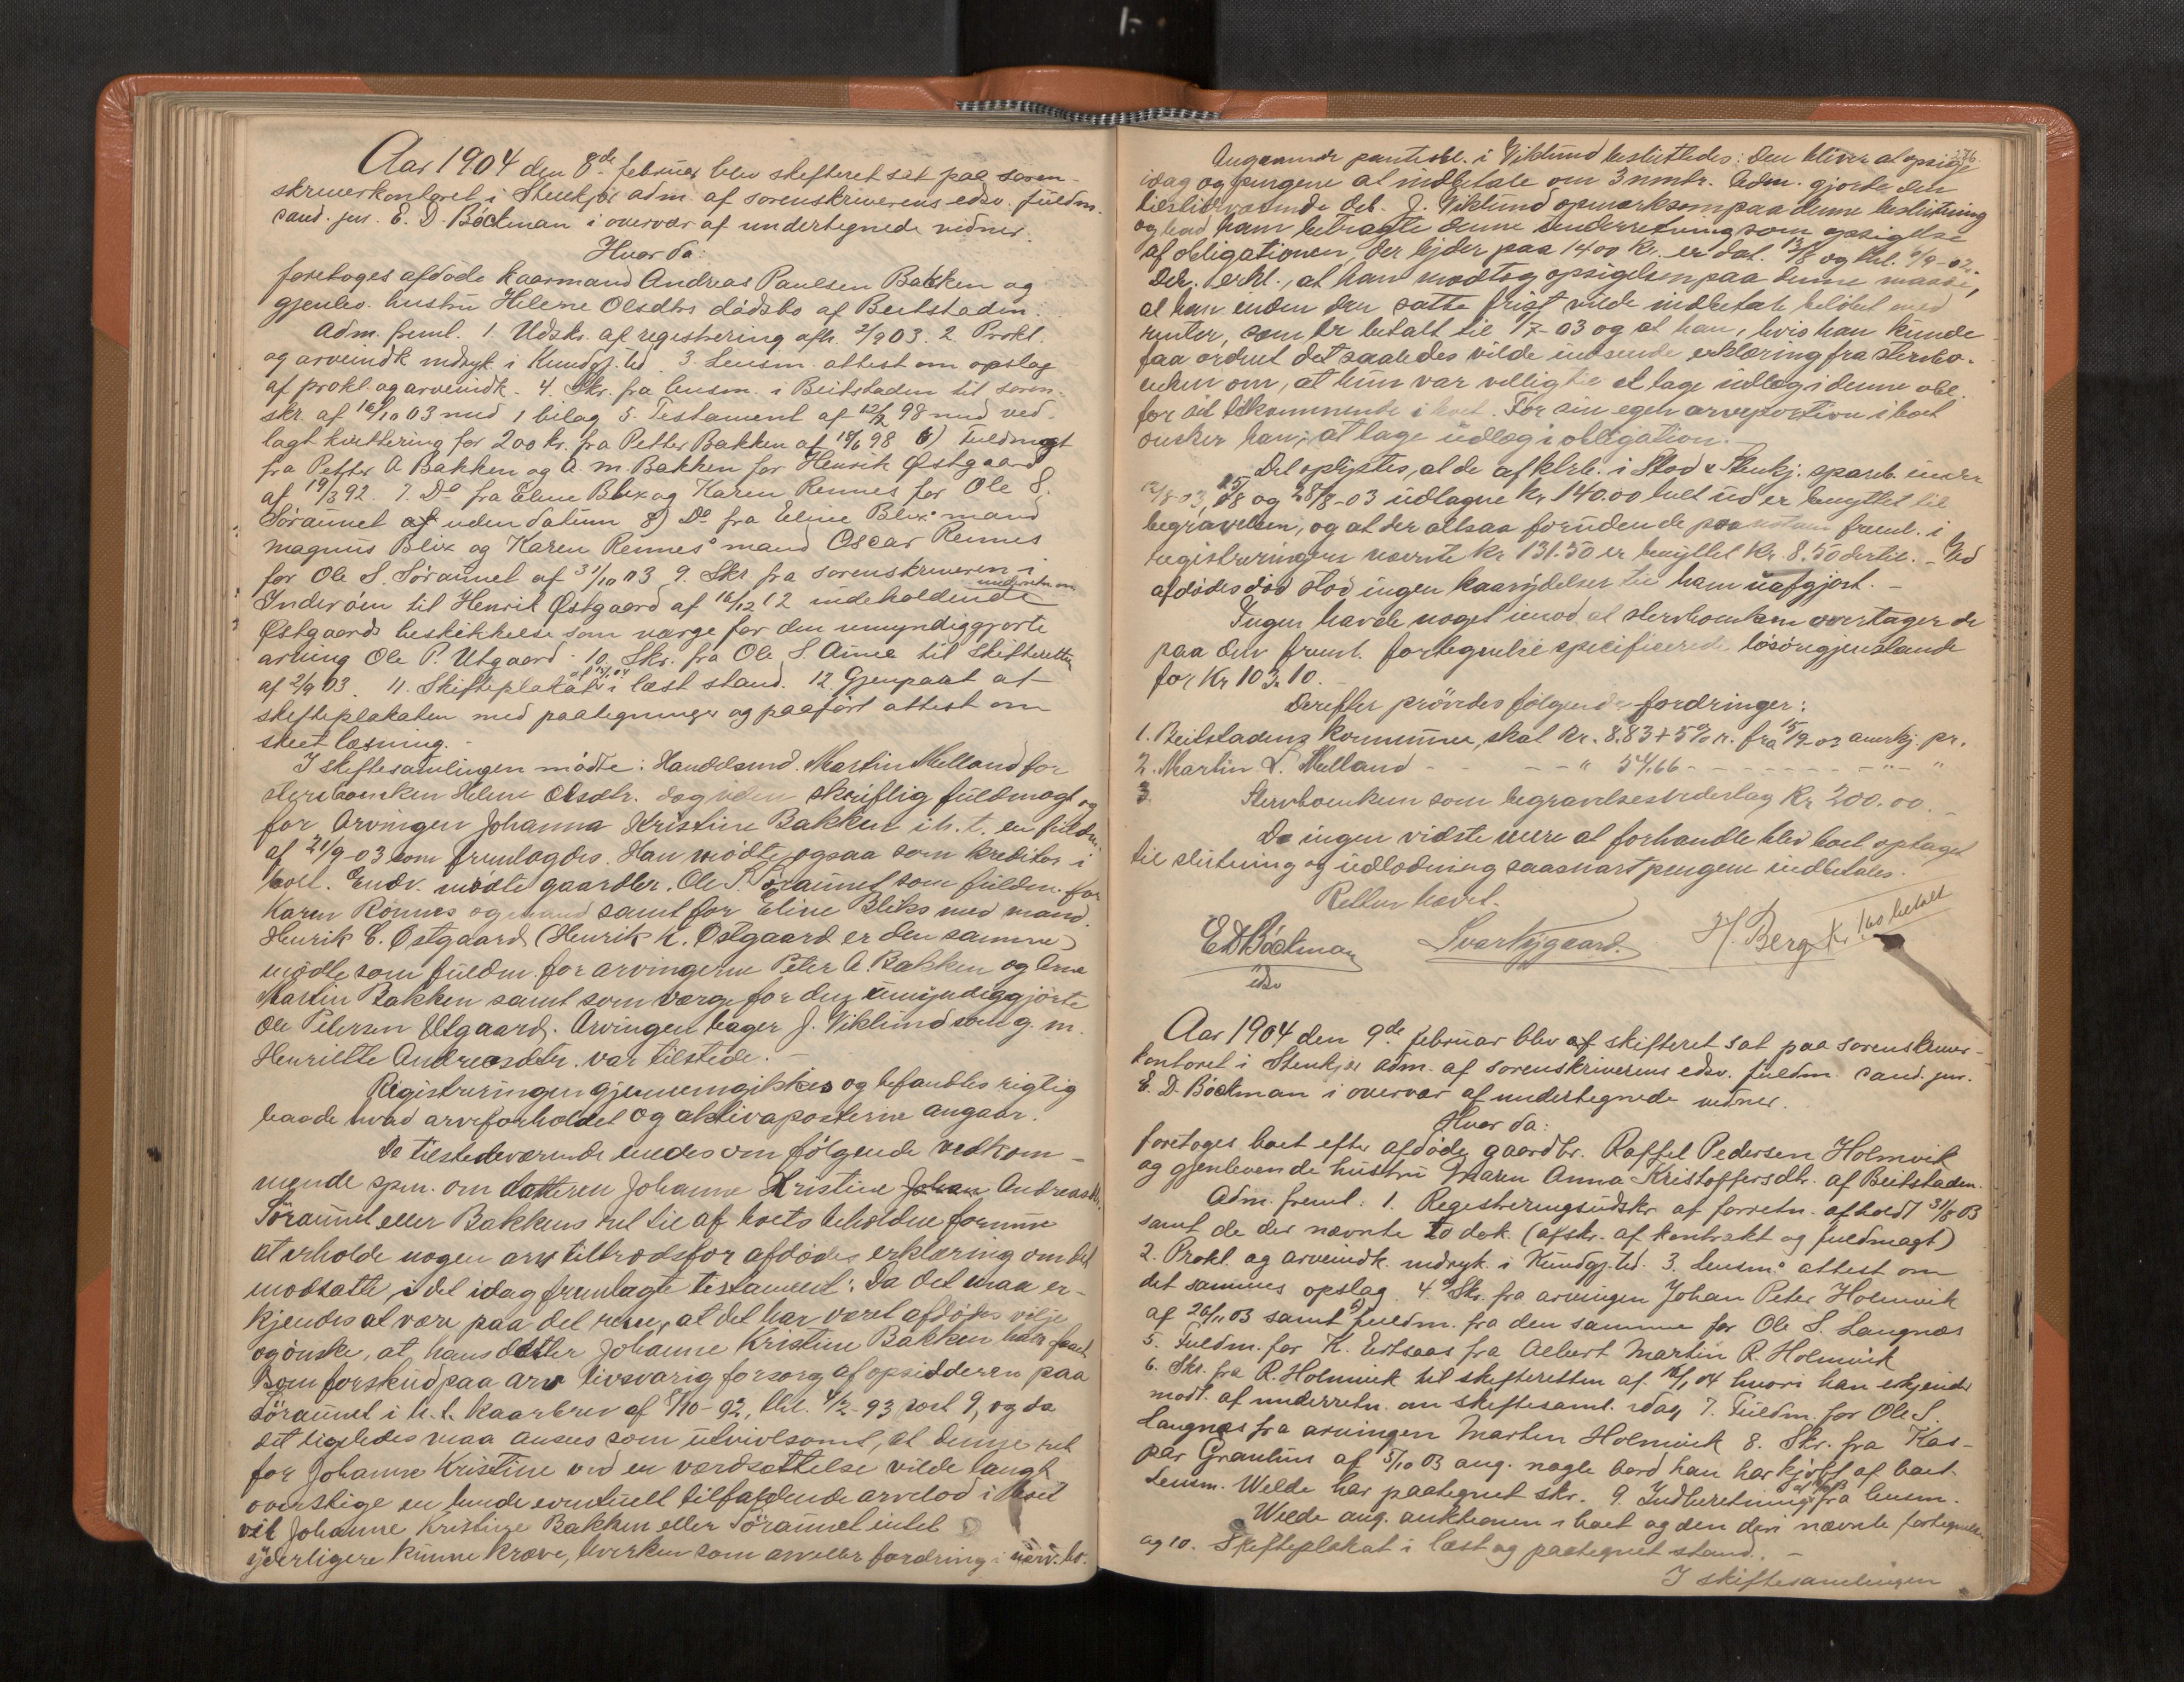 Aar 1904 den 8de februar blev skifteret sat paa soren-
skriverkontoret i Stenkjær adm. af sorenskriverens edsv. fuldm.
cand. jur. E. D. Böckman i overvær af undertegnede vidner.
Hvor da:
foretoges afdöde kaarmand Andreas Paulsen Bakken og
gjenlev. hustru Helene Olsdtrs dödsbo af Beitstaden.
Adm. freml. 1. Udskr. af registrering afh. 2/9 03. 2. Prokl.
og arveindk. indryk. i Kundgj. tid. 3. Lensm. attest om opslag
af prokl. og arveindk. 4. Skr. fra lensm. i Beitstaden til soren-
skr. af 16/10 03 med 1 bilag 5. Testament af 22/2 98 med ved-
lagt kvittering for 200 kr. fra Petter Bakken af 18/6 98 6) Fuldmagt
fra Petter A Bakken og A. M. Bakken for Henrik Østgaard
af 19/3 92. 7. Do fra Eline Blix og Karen Rennes for Ole S.
Söraunet af uden datum 8) Do fra Eline Blix' mand
Magnus Blix og Karen Rennes' mand Oscar Rennes
for Ole S. Söraunet af 31/10 03 9. Skr fra sorenskriveren i
Inderöen til Henrik Østgaard af 16/12 12 indeholdende underretn. om
Østgaards beskikkelse som værge for den umyndiggjorte
arving Ole P. Utgaard. 10. Skr. fra Ole S. Aunet til Skifteretten
af 2/9 03. 11. Skifteplakat i læst stand. 12 Gjenpart af
skifteplakaten med paategninger og paaført attest om
skeet læsning.
I skiftesamlingen mödte: Handelsmd. Martin Melland for
stervboenken Helene Olsdtr. dog uden skriftlig fuldmagt og
for Arvingen Johanna Kristine Bakken i h. t. en fuldm.
af 21/9-03 som fremlagdes. Han mödte ogsaa som kreditor i
boet. Endv. mödte gaardbr. Ole S. Söraunet som fuldm. for
Karen Rönnes og mand samt for Eline Bliks med mand.
Henrik E. Østgaard (Henrik K. Østgaard er den samme)
mödte som fuldm. for arvingerne Peter A. Bakken og Arne
Martin Bakken samt som værge for den umyndiggjörte
Ole Petersen Utgaard. Arvingen bager J. Viklund som g. m.
Henriette Andreasdtr. var tilstede. -
Registreringen gjennemgikkes og befandtes rigtig
baade hvad arveforholdet og aktivaposterne angaar.
De tilstedeværende enedes om følgende vedkom-
mende spm. om datteren Johanne Kristine Johan Andreasdtr.
Söraunet eller Bakkens ret til af boets beholdne formue
at erholde nogen arv tiltrods for afdödes erklæring om det
modsatte, i det idag fremlagte testament: Da det maa er-
kjendes at være paa det rene, at det har været afdödes vilje
og önske, at hans datter Johanne Kristine Bakken har faaet
som forskud paa arv livsvarig forsorg af opsidderen paa
Söraunet i h. t. kaarbrev af 8/10-92, thl. 4/2-93 post 9, og da
det ligeledes maa ansees som utvivlsomt, at denne ret
for Johanne Kristine ved en værdsættelse vilde langt
overstige en hende eventuelt tilfaldende arvelod i boet
vil Johanne Kristine Bakken eller Söraunet intet
yderligere kunne kræve, hverken som arv eller fordring i nærv. bo.
76.
Angaaende pantobl. i Viklund besluttedes: Den bliver at opsige
idag og pengene at indbetale om 3 mndr. Adm. gjorde den
tilstedeværende deb. J. Viklund opmerksom paa denne beslutning
og bad ham betragte denne underretning som opsigelse
af obligationen, der lyder paa 1400 kr. er dat. 13/8 og thl. 6/9-02.
Deb. erkl., at han modtog opsigelsen paa denne maade,
at han inden den satte frist vilde indbetale belöbet med
renter, som er betalt til 1/7-03 og at han, hvis han kunde
faa ordnet det saaledes vilde indsende erklæring fra stervbo-
enken om, at hun var villig til at tage udlæg i denne obl.
for sit tilkommende i boet. For sin egen arveportion i boet
önsker han, at tage udlæg i obligation. -
Det oplystes, at de af klrb. i Stod & Stenkj. spareb. under
12/8-03, 25/8 og 28/8-03 udtagne kr. 140.00 helt ud er benyttet til
begravelsen, og at der altsaa foruden de paa kontant freml. i
registreringen nævnte kr 131.50 er benyttet kr. 8.50 dertil. - Ved
afdödes död stod ingen kaarydelser til ham uafgjort. -
Ingen havde noget imod at stervboenken overtager de
paa den freml. fortegnelse specificerede lösöregjenstande
for Kr 103.10.
Derefter prövedes fölgende fordringer:
1. Beitstadens kommune, skat Kr. 8.83 + 5% r. fra 15/9-03 anerkj. pr.
2. Martin L. Melland - - - - " 54.66 - - - - - - - " - "
3. Stervboenken som begravelsesvederlag Kr 200.00. -
Da ingen vidste mere at forhandle blev boet optaget
til slutning og udlodning saasnart pengene indbetales.
Retten hævet.
EDBöckman
edsv
Ivar Nygaard.
H. Berg
Kr. 1.60 betalt
Aar 1904 den 9de februar blev af skifteret sat paa sorenskriver-
kontoret i Stenkjer adm. af sorenskriverens edsv. fuldm. cand. jur.
E. D. Böckman i overvær af undertegnede vidner.
Hvor da:
foretoges boet efter afdöde gaardbr. Raffel Pedersen Holmvik
og gjenlevende hustru Maren Anna Kristoffersdtr. af Beitstaden.
Adm. freml. 1. Registreringsudskr. af forretn. afholdt 31/8 03
samt de der nævnte to dok. (afskr. af kontrakt og fuldmagt)
2. Prokl. og arveindk. indryk. i Kundgj. tid. 3. Lensms attest om
det sammes opslag. 4. a) Skr. fra arvingen Johan Peter Holmvik
af 26/11 03 samt b) fuldm. fra den samme for Ole S. Langnæs
5. Fuldm. for K. Ertsaas fra Albert Martin R. Holmvik
6. Skr. fra R. Holmvik til skifteretten af 16/1 04 hvori han erkjender
modt. af underretn. om skiftesaml. idag 7. Fuldm. for Ole S.
Langnæs fra arvingen Marten Holmvik 8. Skr. fra Kas-
par Granhus af 5/10 03 ang. nogle bord han har kjöbt af boet.
Lensm. Welde har paategnet skr. 9. Indberetning fra lensm.
Welde ang. auktionen i boet og den deri nævnte fortegnelse
og 10. Skifteplakat i læst og paategnet stand. -
I skiftesamlingen